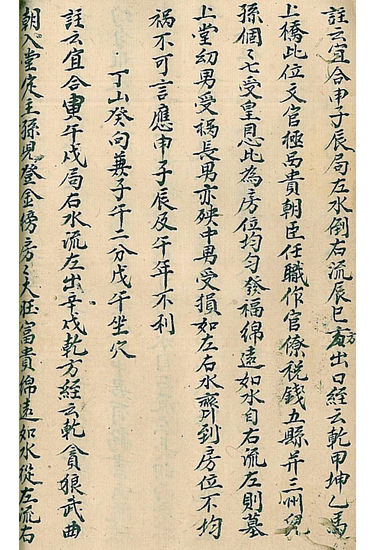 註云宜合申子辰局左水倒右流辰巳方出口經云乾甲坤乙馬
上橋此位文官極品貴朝臣任職作官僚稅錢五縣并三州兒
孫個々受皇恩此為房位均勻發福綿遠如水自右流左則墓
上堂幼男受禍長男亦殃中男受損如左右水齊到房位不均
禍不可言應申子辰及午年不利
丁山癸向兼子午二分戊午坐穴
註云宜合寅午戌局右水流左出辛戌乾方經云乾貪狼武曲
朝入堂庭主孫兒登金榜房々大旺富貴綿遠如水從左流右